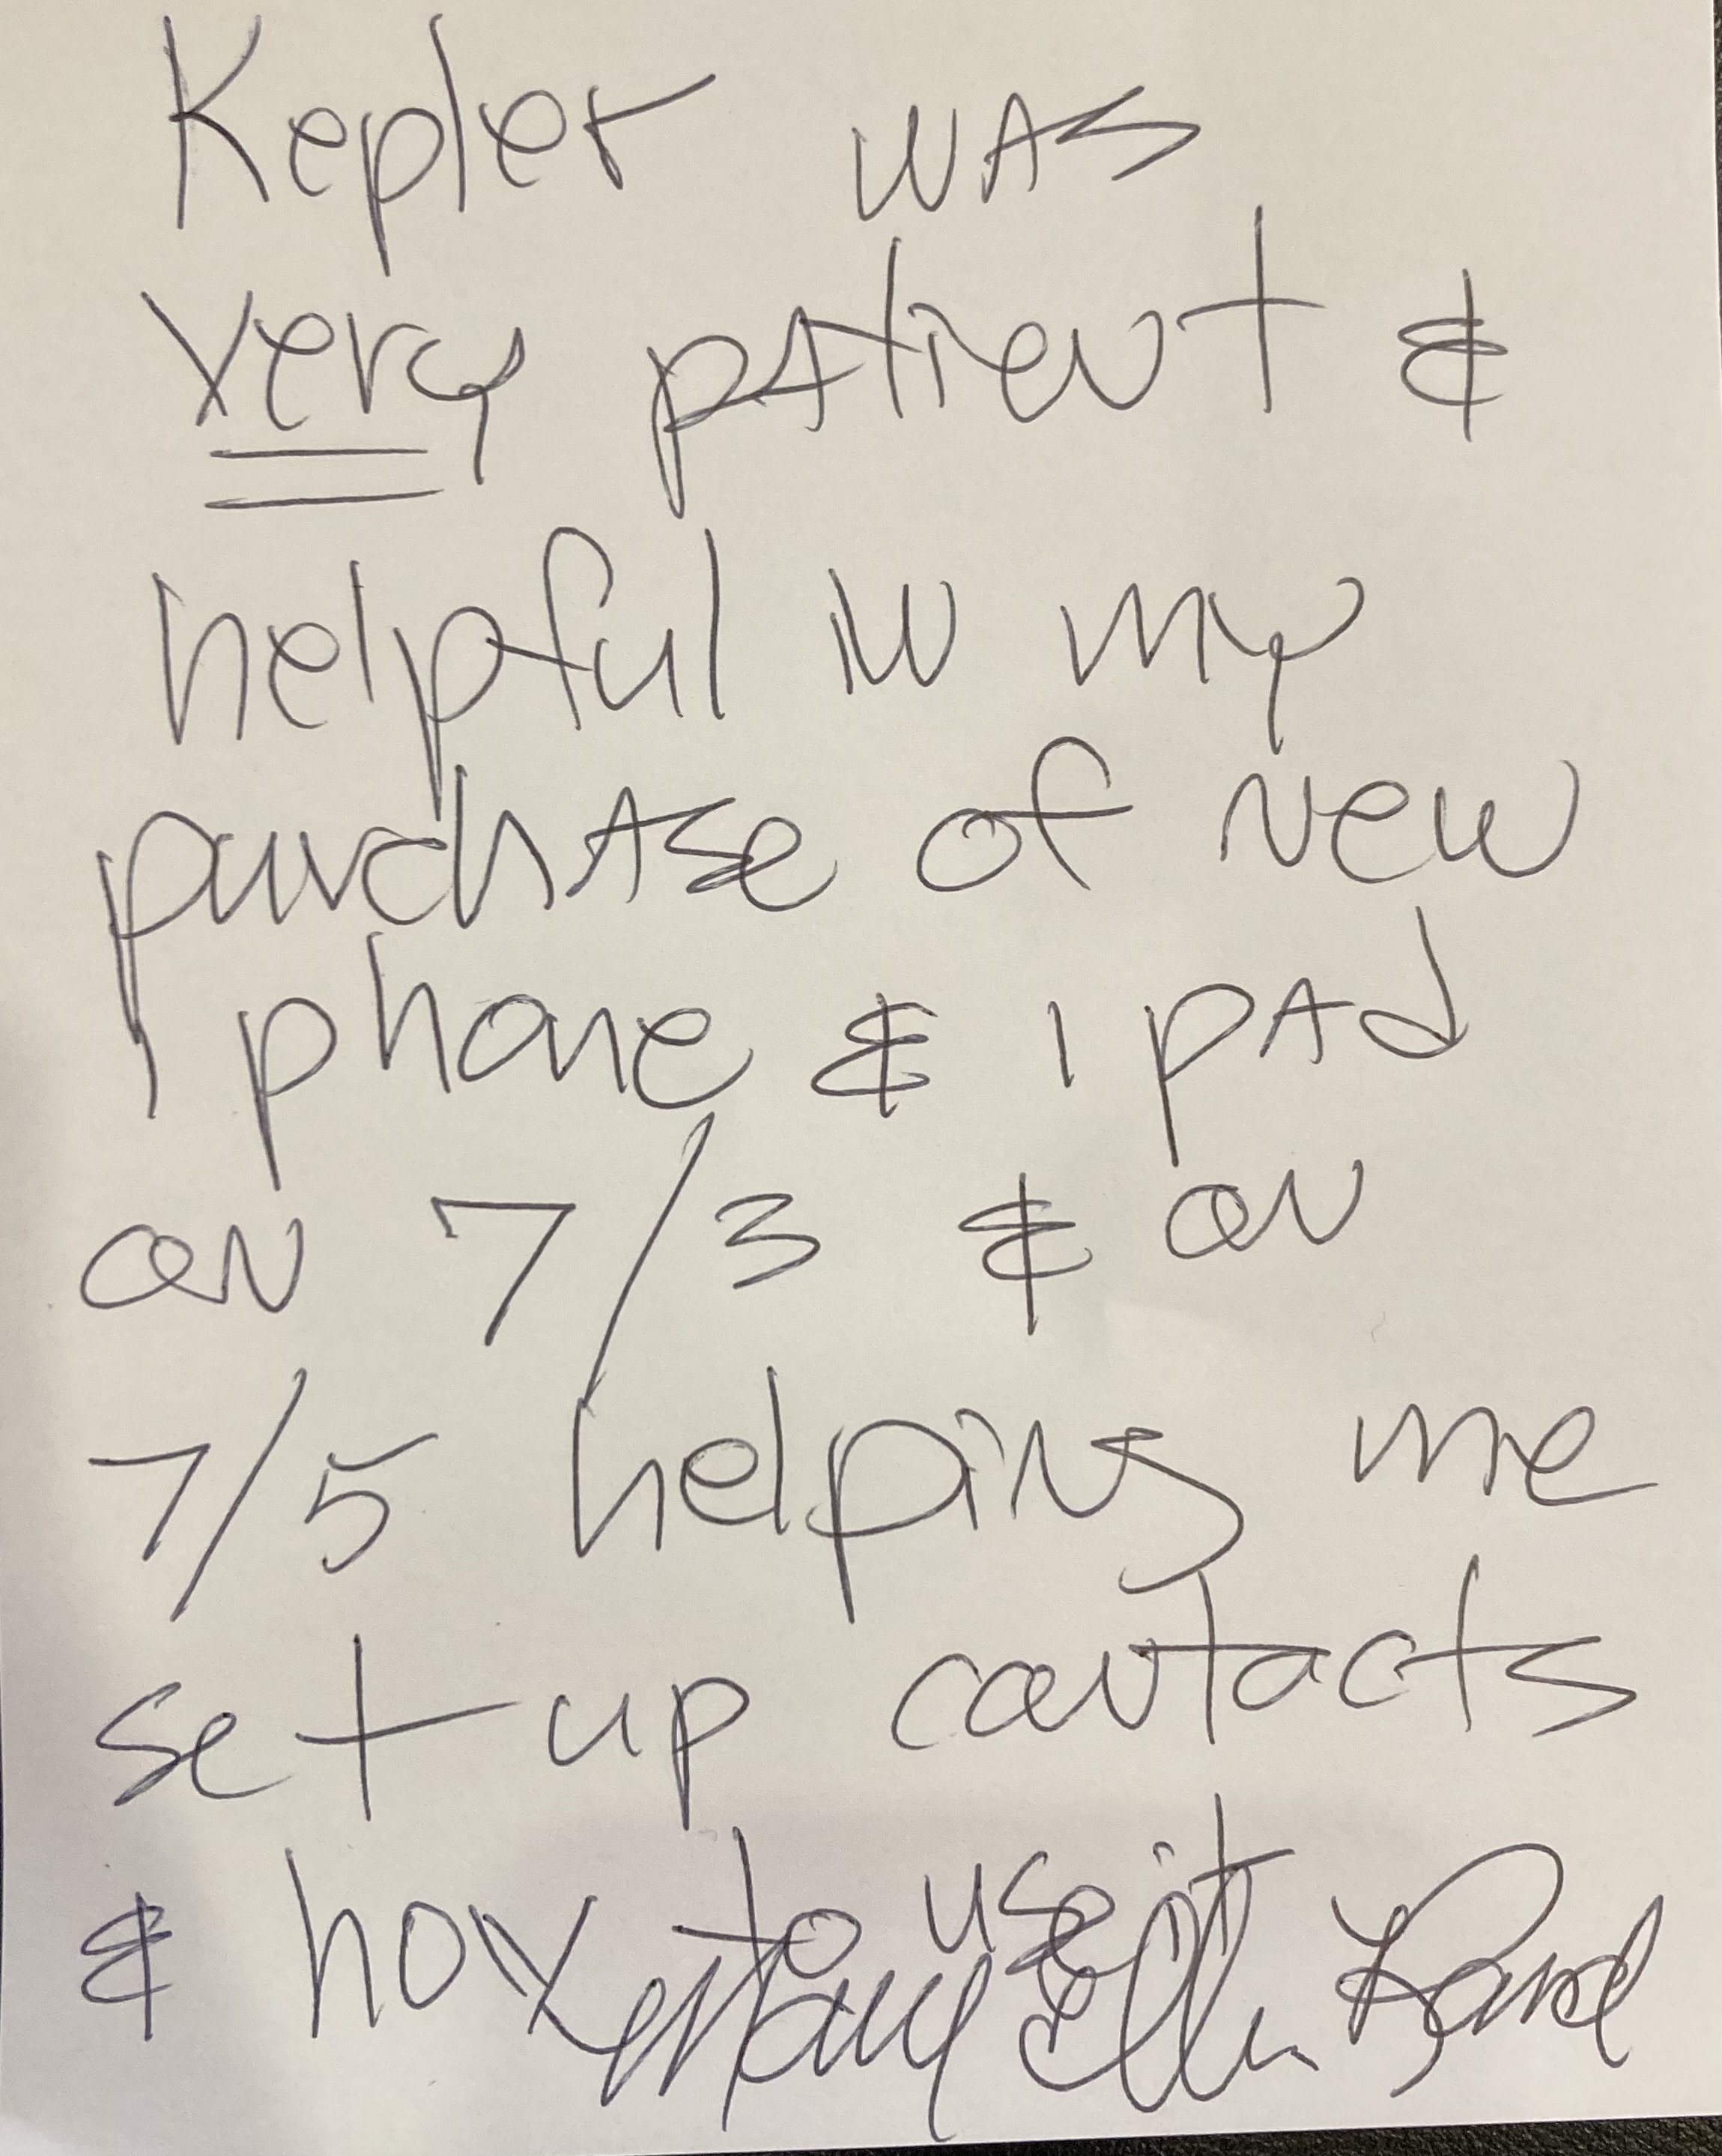 Kepler was
very patient &
helpful in my
purchase of new
I phone & I pad
on 7/3 & on
7/5 helping me
set up contacts
& how to use it
Mary Ellen